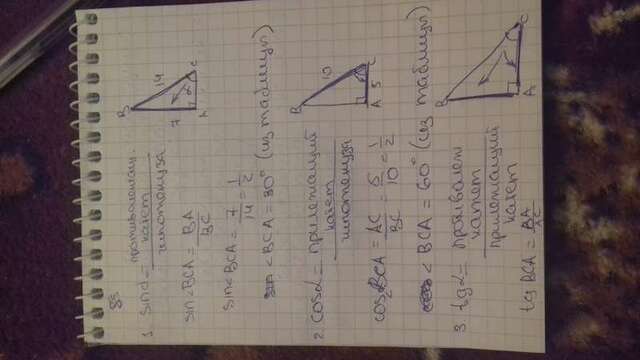 1. sinα = противолежащ. катет / гипотенуза
sin<BCA = BA / BC
sin<BCA = 7 / 14 = 1 / 2
<BCA = 30° (из таблицы)
B 14 C 7 A α
2. cosα = прилежащий катет / гипотенуза
cos BCA = AC / BC = 5 / 10 = 1 / 2
<BCA = 60° (из таблицы)
B 10 C A 5
3. tgα = противолеж катет / прилежащий катет
tg BCA = BA / AC
B C A